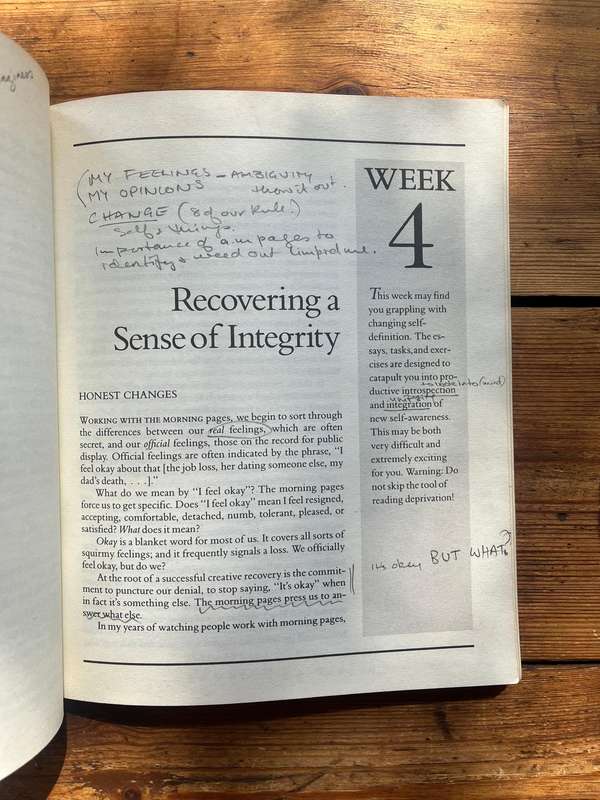 MY FEELINGS – AMBIGUITY
MY OPINIONS throw it out.
CHANGE (8 of our Rule!)
Self & things.
importance of a.m pages to
identify & weed out
WEEK
4
Recovering a
Sense of Integrity
This week may find
you grappling with
changing self-
definition. The es-
says, tasks, and exer-
cises are designed to
catapult you into pro-
ductive introspection
and integration of
new self-awareness.
This may be both
very difficult and
extremely exciting
for you. Warning: Do
not skip the tool of
reading deprivation!
to look into (mind)
HONEST CHANGES
WORKING WITH THE MORNING pages, we begin to sort through
the differences between our real feelings, which are often
secret, and our official feelings, those on the record for public
display. Official feelings are often indicated by the phrase, "I
feel okay about that [the job loss, her dating someone else, my
dad's death, . . .]."
What do we mean by "I feel okay"? The morning pages
force us to get specific. Does "I feel okay" mean I feel resigned,
accepting, comfortable, detached, numb, tolerant, pleased, or
satisfied? What does it mean?
Okay is a blanket word for most of us. It covers all sorts of
squirmy feelings; and it frequently signals a loss. We officially
feel okay, but do we?
At the root of a successful creative recovery is the commit-
ment to puncture our denial, to stop saying, "It's okay" when
in fact it's something else. The morning pages press us to an-
swer what else.
In my years of watching people work with morning pages,
its okay BUT WHAT?